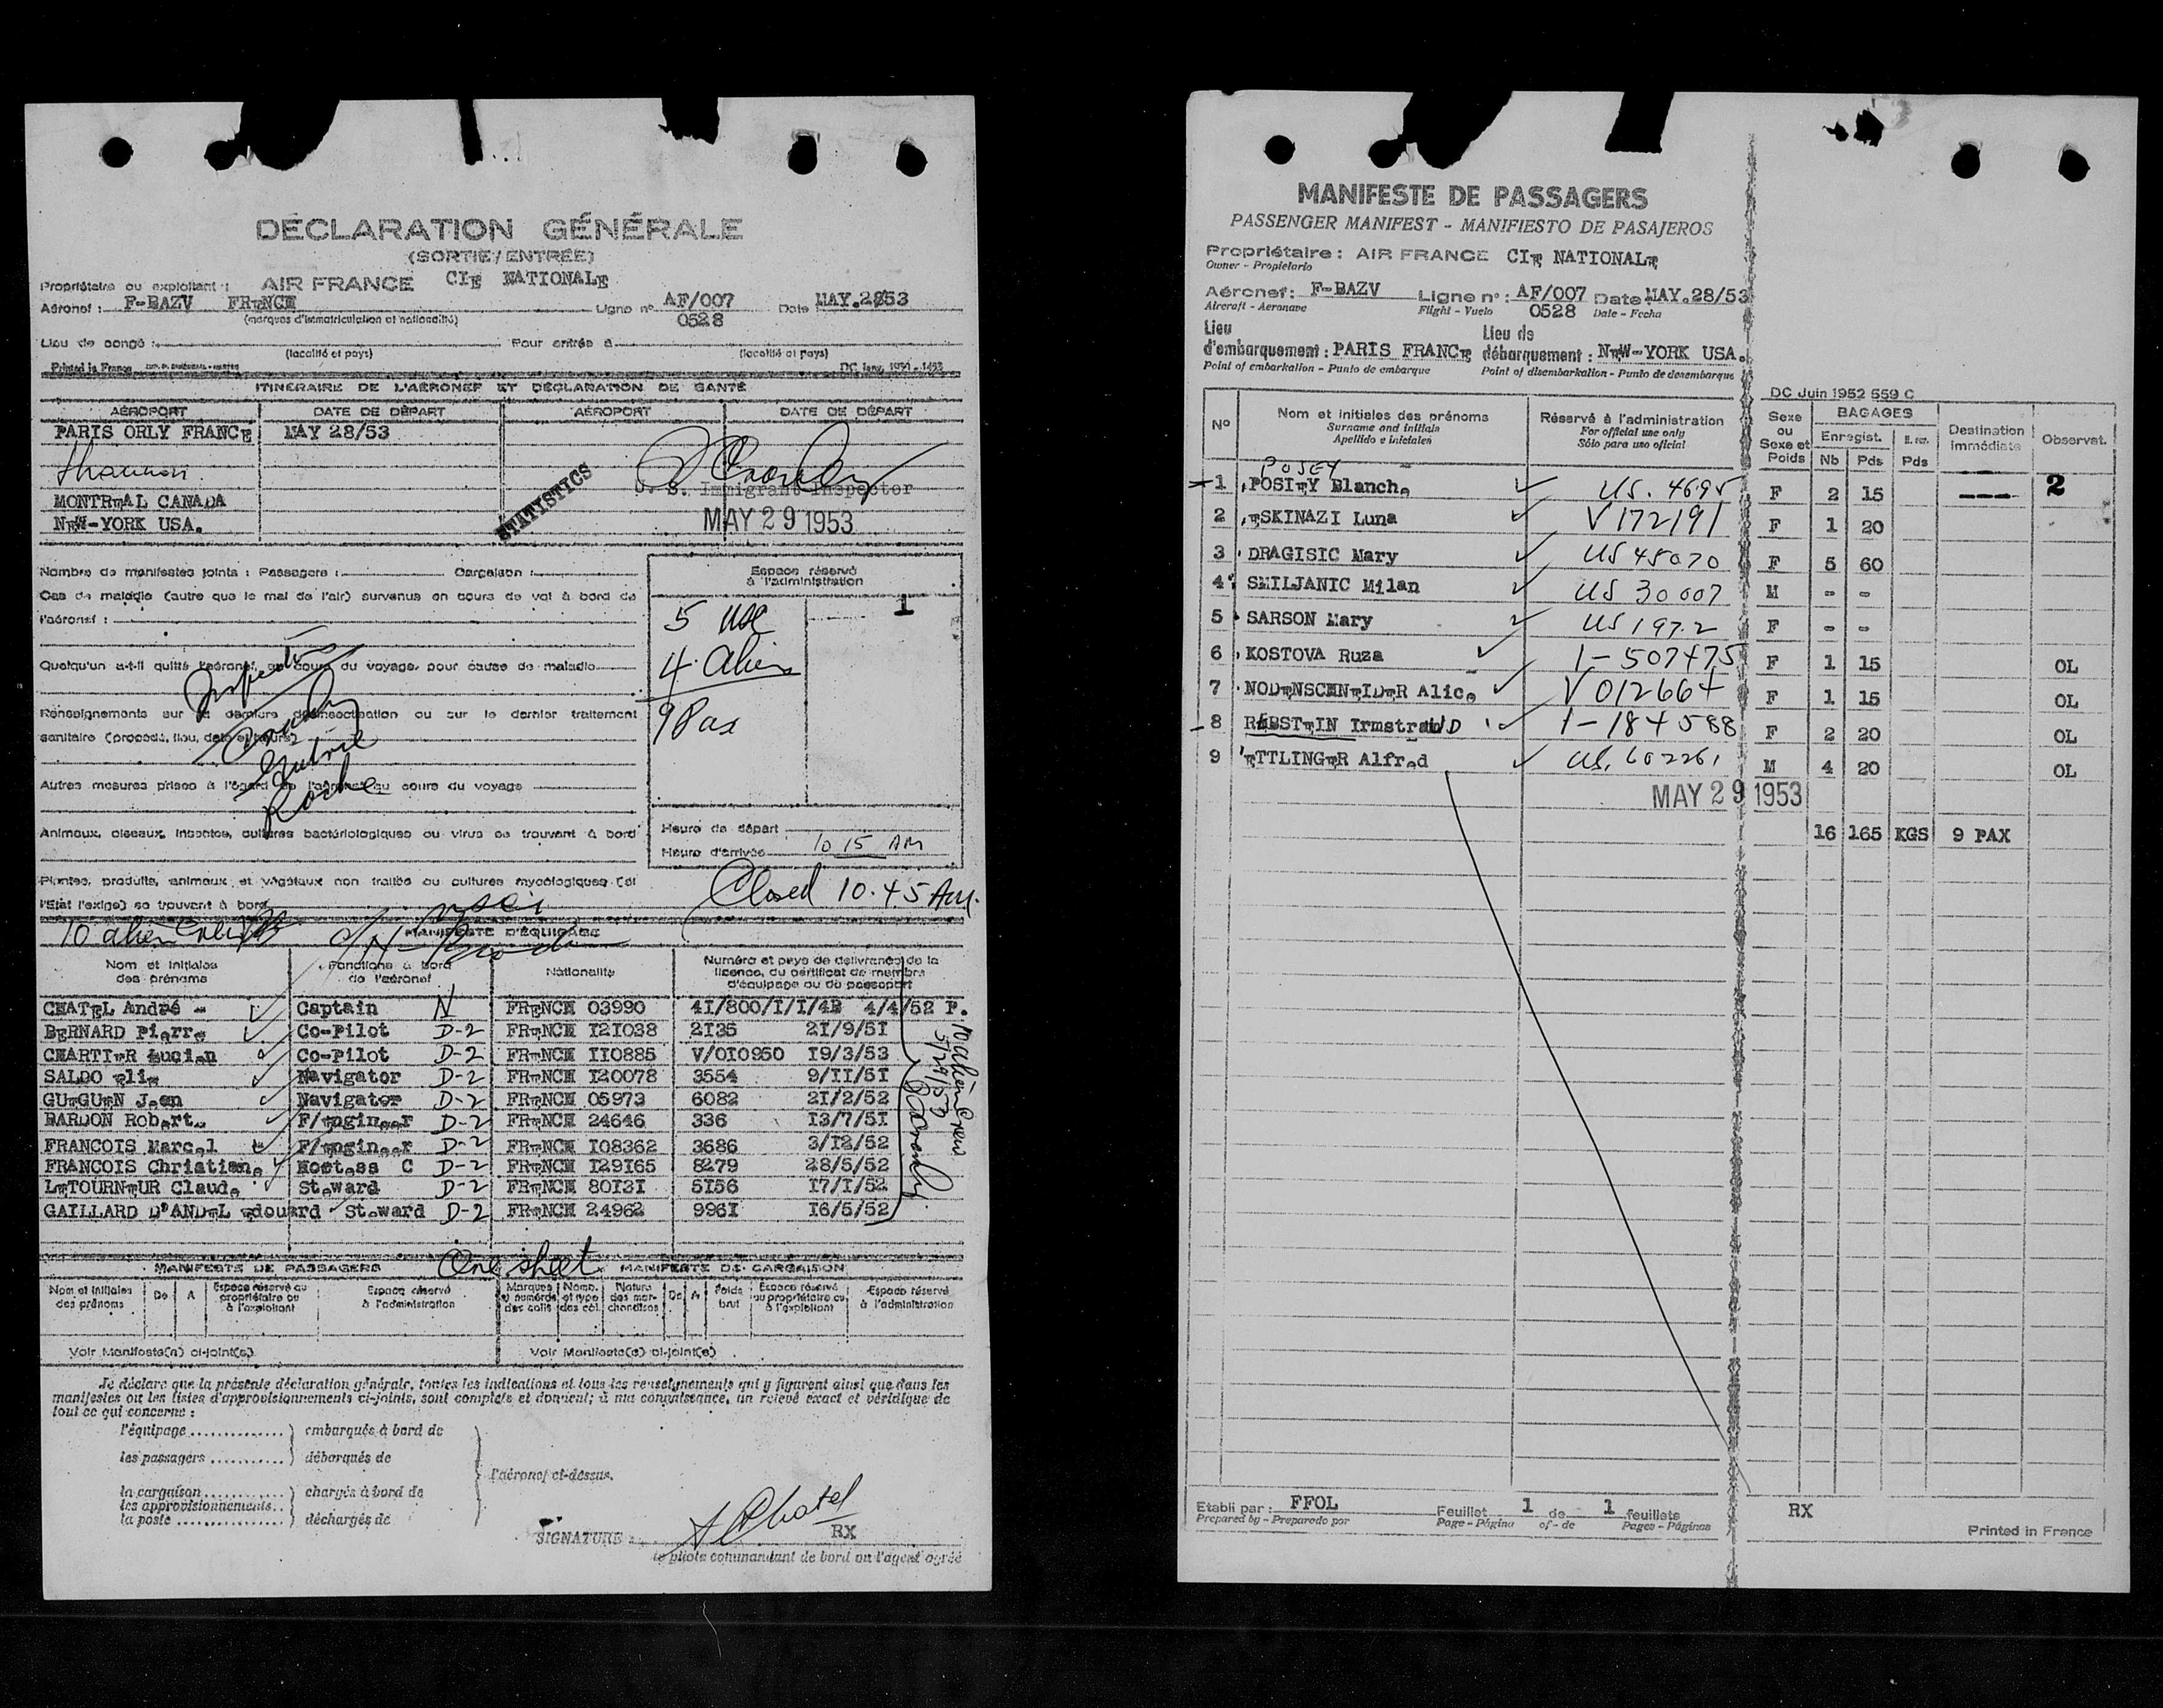 DÉCLARATION GÉNÉRALE
(SORTIE/ENTRÉE)
Propriétaire ou exploitant : AIR FRANCE CIE NATIONALE
Aéronef : F-BAZV FRENCH Ligne n° AF/007 Date MAY.28/53
(marques d'immatriculation et nationalité) 0528
Lieu de congé : Pour entrée à
(localité et pays) (localité et pays)
Printed in France
ITINÉRAIRE DE L'AÉRONEF ET DÉCLARATION DE SANTÉ
AÉROPORT DATE DE DÉPART AÉROPORT DATE DE DÉPART
PARIS ORLY FRANCE MAY 28/53
Shannon
MONTREAL CANADA
NEW-YORK USA.
STATISTICS
U. S. Immigrant Inspector
MAY 29 1953
Nombre de manifestes joints : Passagers : Cargaison :
Cas de maladie (autre que le mal de l'air) survenus en cours de vol à bord de
l'aéronef :
Quelqu'un a-t-il quitté l'aéronef, au cours du voyage, pour cause de maladie
Renseignements sur la dernière désinsectisation ou sur le dernier traitement
sanitaire (procédé, lieu, date et heure)
Autres mesures prises à l'égard de l'aéronef au cours du voyage
Animaux, oiseaux, insectes, cultures bactériologiques ou virus se trouvant à bord
Plantes, produits, animaux et végétaux non traités ou cultures mycologiques (si
l'Etat l'exige) se trouvant à bord
Inspector
Crowley
Roche
Espace réservé
à l'administration
1
5 USC
4 Alien
9 Pax
Heure de départ
Heure d'arrivée 10 15 AM
Closed 10.45 AM.
10 alien Crew
MANIFESTE D'ÉQUIPAGE
Nom et initiales des prénoms Fonctions à bord de l'aéronef Nationalité Numéro et pays de délivrance de la licence, du certificat de membre d'équipage ou du passeport
CHATEL André - Captain N FRENCH 03990 4I/800/I/I/4B 4/4/52 P.
BERNARD Pierre Co-Pilot D-2 FRENCH I2I038 2I35 2I/9/5I
CHARTIER Lucien Co-Pilot D-2 FRENCH II0885 V/0I0950 I9/3/53
SALDO Elie Navigator D-2 FRENCH I20078 3554 9/II/5I
GUEGUEN Jean Navigator D-2 FRENCH 05973 6082 2I/2/52
BARDON Robert. F/Engineer D-2 FRENCH 24646 336 I3/7/5I
FRANCOIS Marcel F/Engineer D-2 FRENCH I08362 3686 3/I2/52
FRANCOIS Christiane Hostess C D-2 FRENCH I29I65 8279 28/5/52
LETOURNEUR Claude Steward D-2 FRENCH 80I3I 5I56 I7/I/52
GAILLARD D'ANDEL Edouard Steward D-2 FRENCH 24962 996I I6/5/52
10 alien Crew
5/29/53
One sheet
MANIFESTE DE PASSAGERS MANIFESTE DE CARGAISON
Nom et initiales des prénoms De A Espace réservé au propriétaire ou à l'exploitant Espace réservé à l'administration Marques et numéros des colis Nomb. et type des col. Nature des marchandises De A Poids brut Espace réservé au propriétaire ou à l'exploitant Espace réservé à l'administration
Voir Manifeste(s) ci-joint(s) Voir Manifeste(s) ci-joint(s)
Je déclare que la présente déclaration générale, toutes les indications et tous les renseignements qui y figurent ainsi que dans les
manifestes ou les listes d'approvisionnements ci-joints, sont complets et donnent, à ma connaissance, un relevé exact et véridique de
tout ce qui concerne :
l'équipage embarqués à bord de
les passagers débarqués de
l'aéronef ci-dessus.
la cargaison chargés à bord de
les approvisionnements
la poste déchargés de
SIGNATURE : A Chatel
RX
Le pilote commandant de bord ou l'agent agréé
MANIFESTE DE PASSAGERS
PASSENGER MANIFEST - MANIFIESTO DE PASAJEROS
Propriétaire : AIR FRANCE CIE NATIONALE
Owner - Propietario
Aéronef : F-BAZV Ligne n° : AF/007 Date MAY.28/53
Aircraft - Aeronave Flight - Vuelo 0528 Date - Fecha
Lieu d'embarquement : PARIS FRANCE Lieu de débarquement : NEW-YORK USA.
Point of embarkation - Punto de embarque Point of disembarkation - Punto de desembarque
DC Juin 1952 559 C
N° Nom et initiales des prénoms Réservé à l'administration Sexe ou Sexe et Poids BAGAGES Destination immédiate Observat.
Surname and initials For official use only Enregist.
Apellido e iniciales Sólo para uso oficial Nb Pds Pds
POSEY
1 POSIEY Blanche US. 4695 F 2 15 --- 2
2 ESKINAZI Luna V172191 F 1 20
3 DRAGISIC Mary US 45070 F 5 60
4 SMILJANIC Milan US 30007 M - -
5 SARSON Mary US 1972 F - -
6 KOSTOVA Ruza 1-507475 F 1 15 OL
7 NODENSCHNEIDER Alice V 012664 F 1 15 OL
8 REBSTEIN IrmstrauD 1-184588 F 2 20 OL
9 ETTLINGER Alfred US. 602261 M 4 20 OL
MAY 29 1953
16 165 KGS 9 PAX
Etabli par : FFOL Feuillet 1 de 1 feuillets RX
Prepared by - Preparado por Page - Página of - de Pages - Páginas
Printed in France